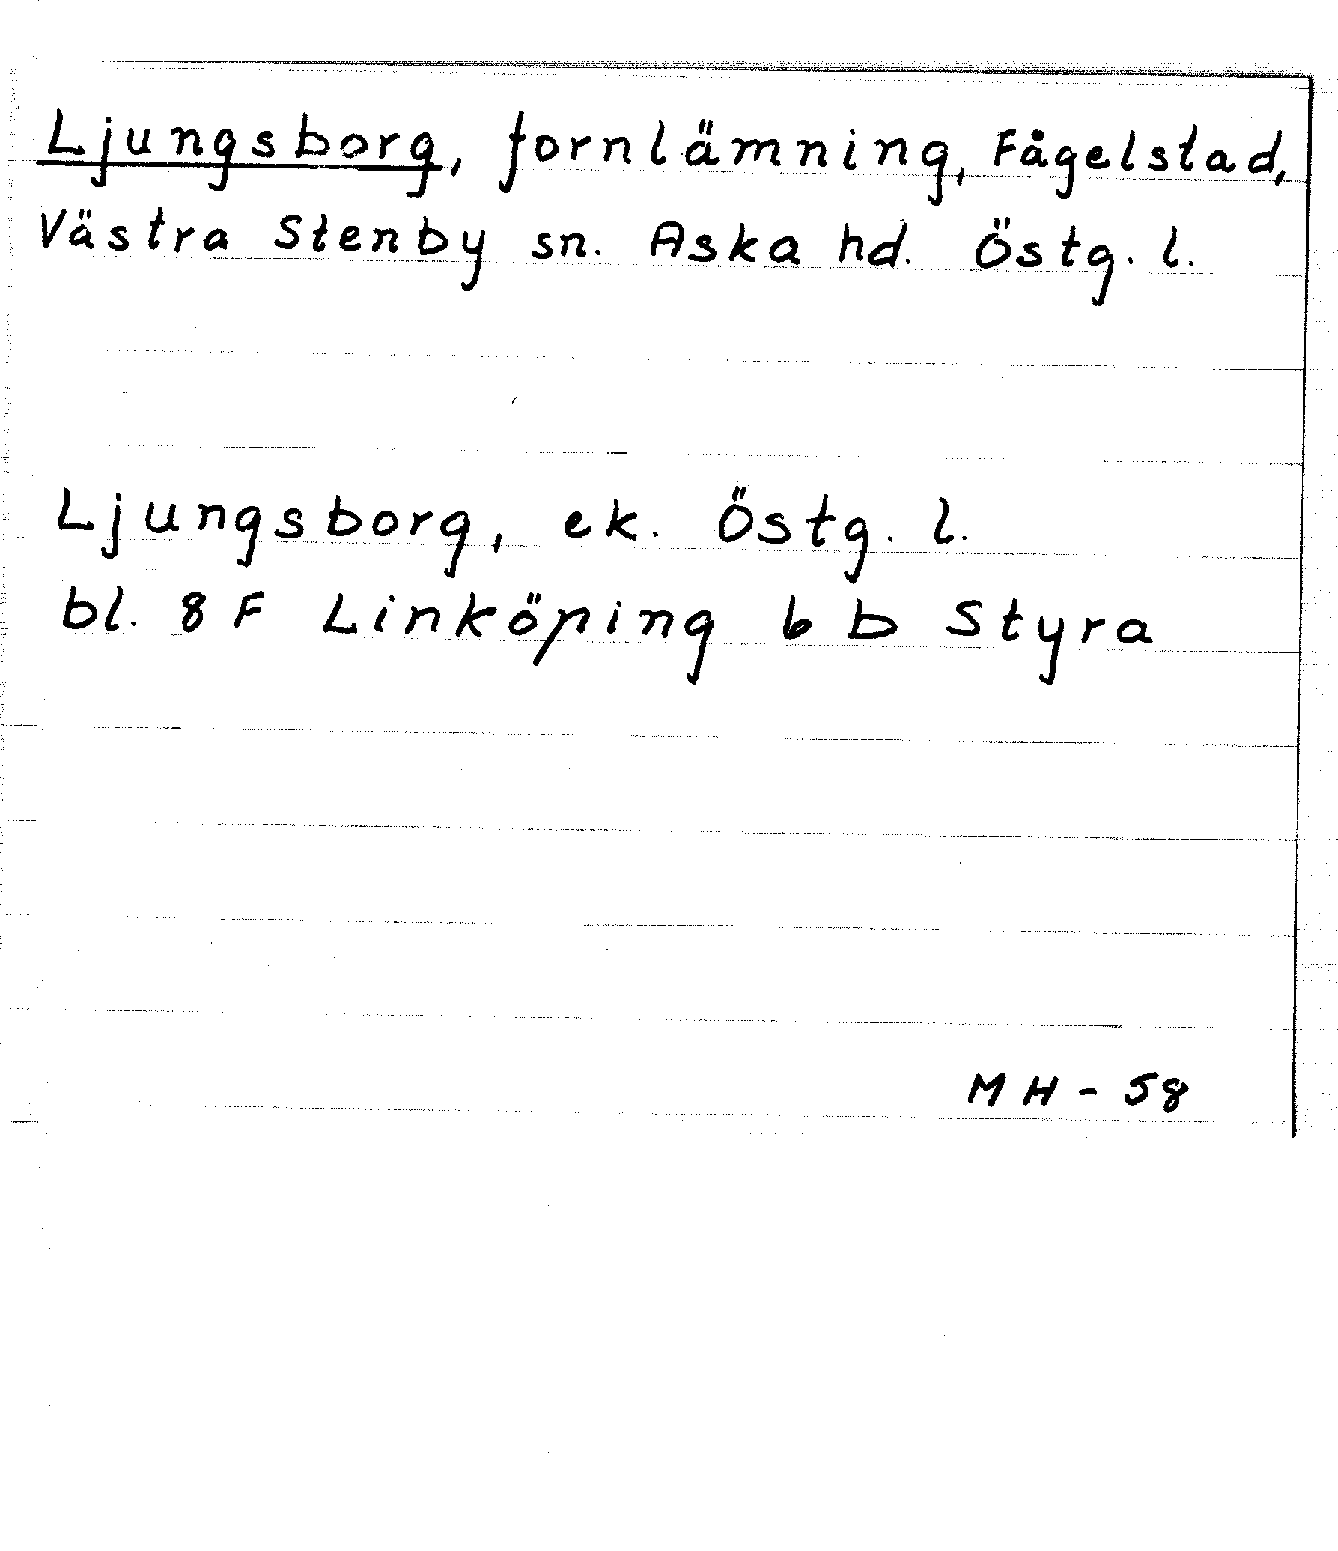 Ljungsborg, fornlämning, Fågelstad,
Västra Stenby sn. Aska hd. Östg. l.
Ljungsborg, ek. Östg. l.
bl. 8 F Linköping 6 b Styra
MH - 58